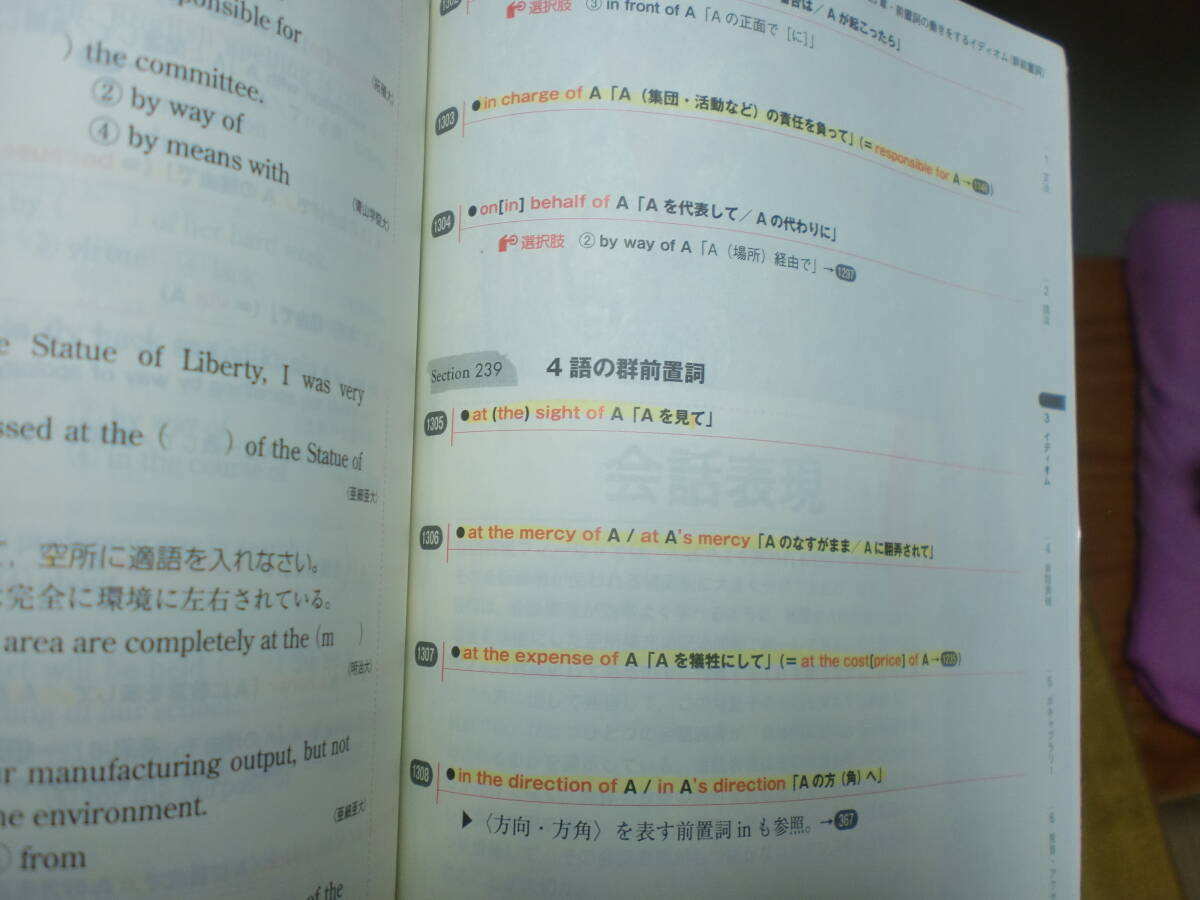 ponsible for
) the committee.
② by way of
④ by means with
(青山学院大)
e Statue of Liberty, I was very
ssed at the ( ) of the Statue of
(亜細亜大)
空所に適語を入れなさい。
完全に環境に左右されている。
area are completely at the (m )
(明治大)
r manufacturing output, but not
e environment.
(亜細亜大)
from
of the
前置詞の働きをするイディオム(群前置詞)
/ A が起こったら」
選択肢 ③ in front of A「A の正面で［に］」
1303 ●in charge of A「A（集団・活動など）の責任を負って」(= responsible for A→)
1304 ●on[in] behalf of A「A を代表して／A の代わりに」
選択肢 ② by way of A「A（場所）経由で」→1297
Section 239 4 語の群前置詞
1305 ●at (the) sight of A「A を見て」
1306 ●at the mercy of A / at A's mercy「A のなすがまま／A に翻弄されて」
1307 ●at the expense of A「A を犠牲にして」(= at the cost[price] of A→)
1308 ●in the direction of A / in A's direction「A の方（角）へ」
▶〈方向・方角〉を表す前置詞 in も参照。→367
会話表現
3 イディオム
5 ボキャブラリー